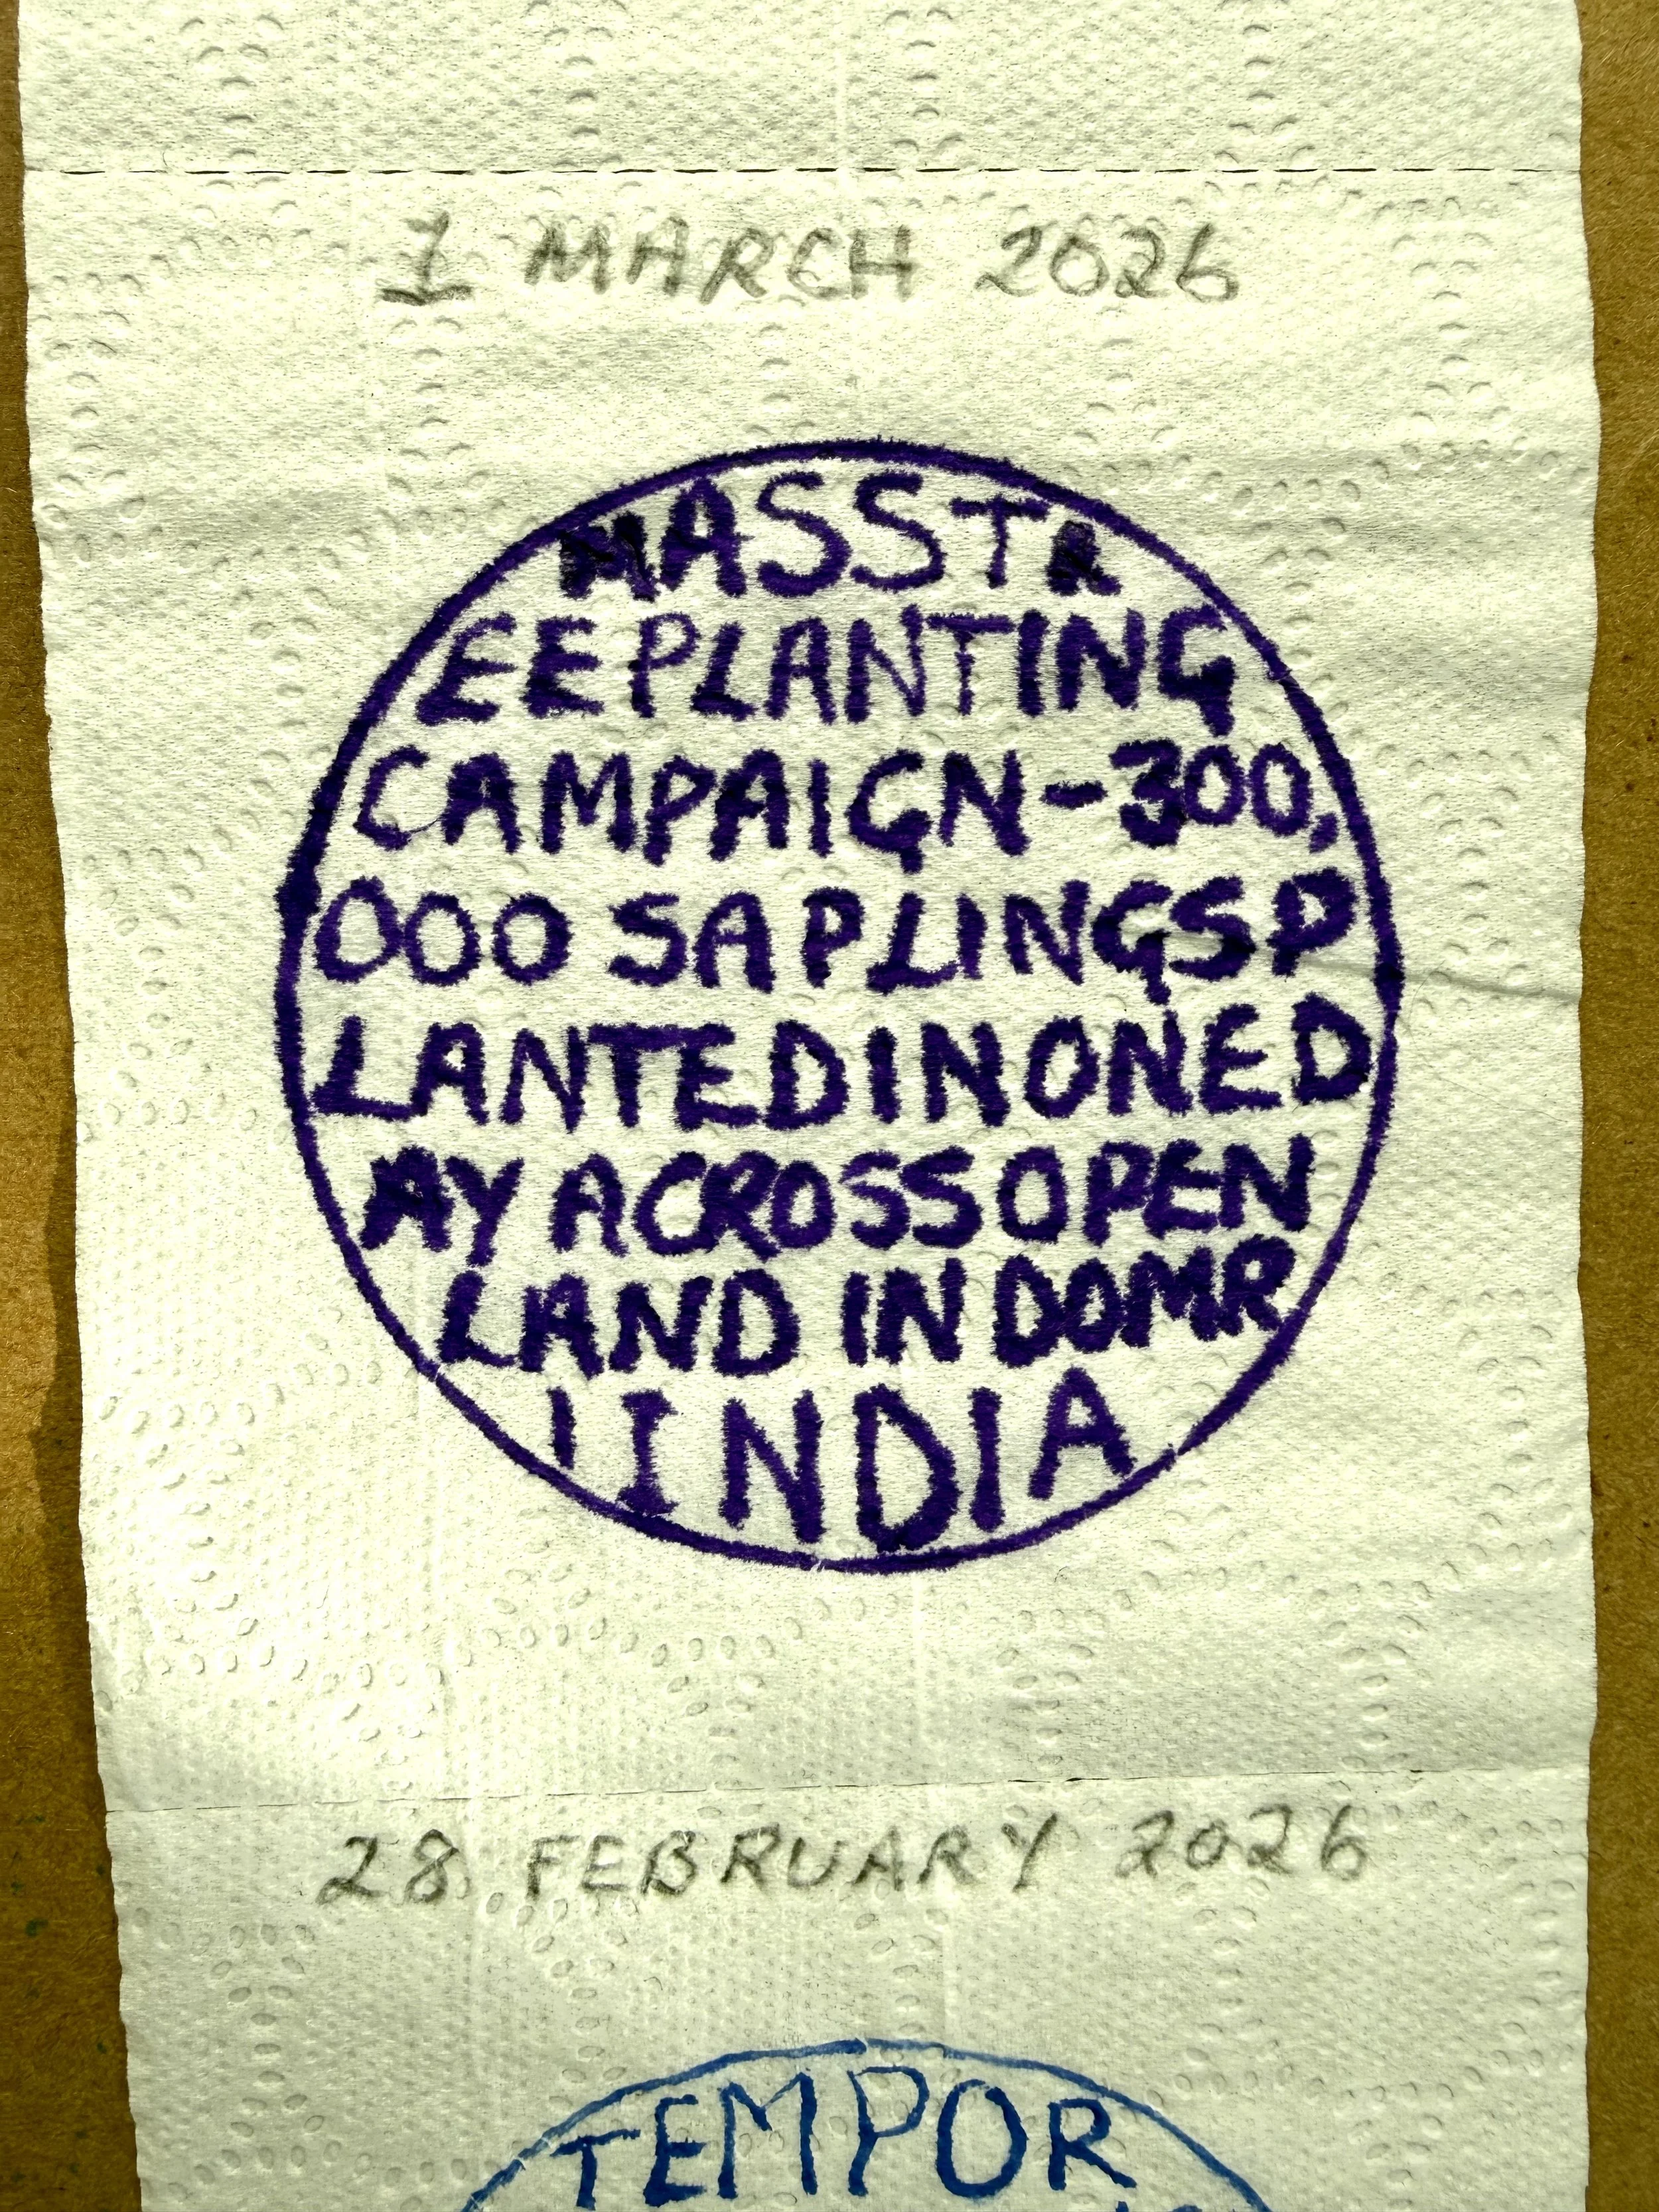 1 MARCH 2026
MASSTR
EEPLANTING
CAMPAIGN-300,
000 SAPLINGSP
LANTEDINONED
AY ACROSSOPEN
LAND IN DOMR
I INDIA
28 FEBRUARY 2026
TEMPOR